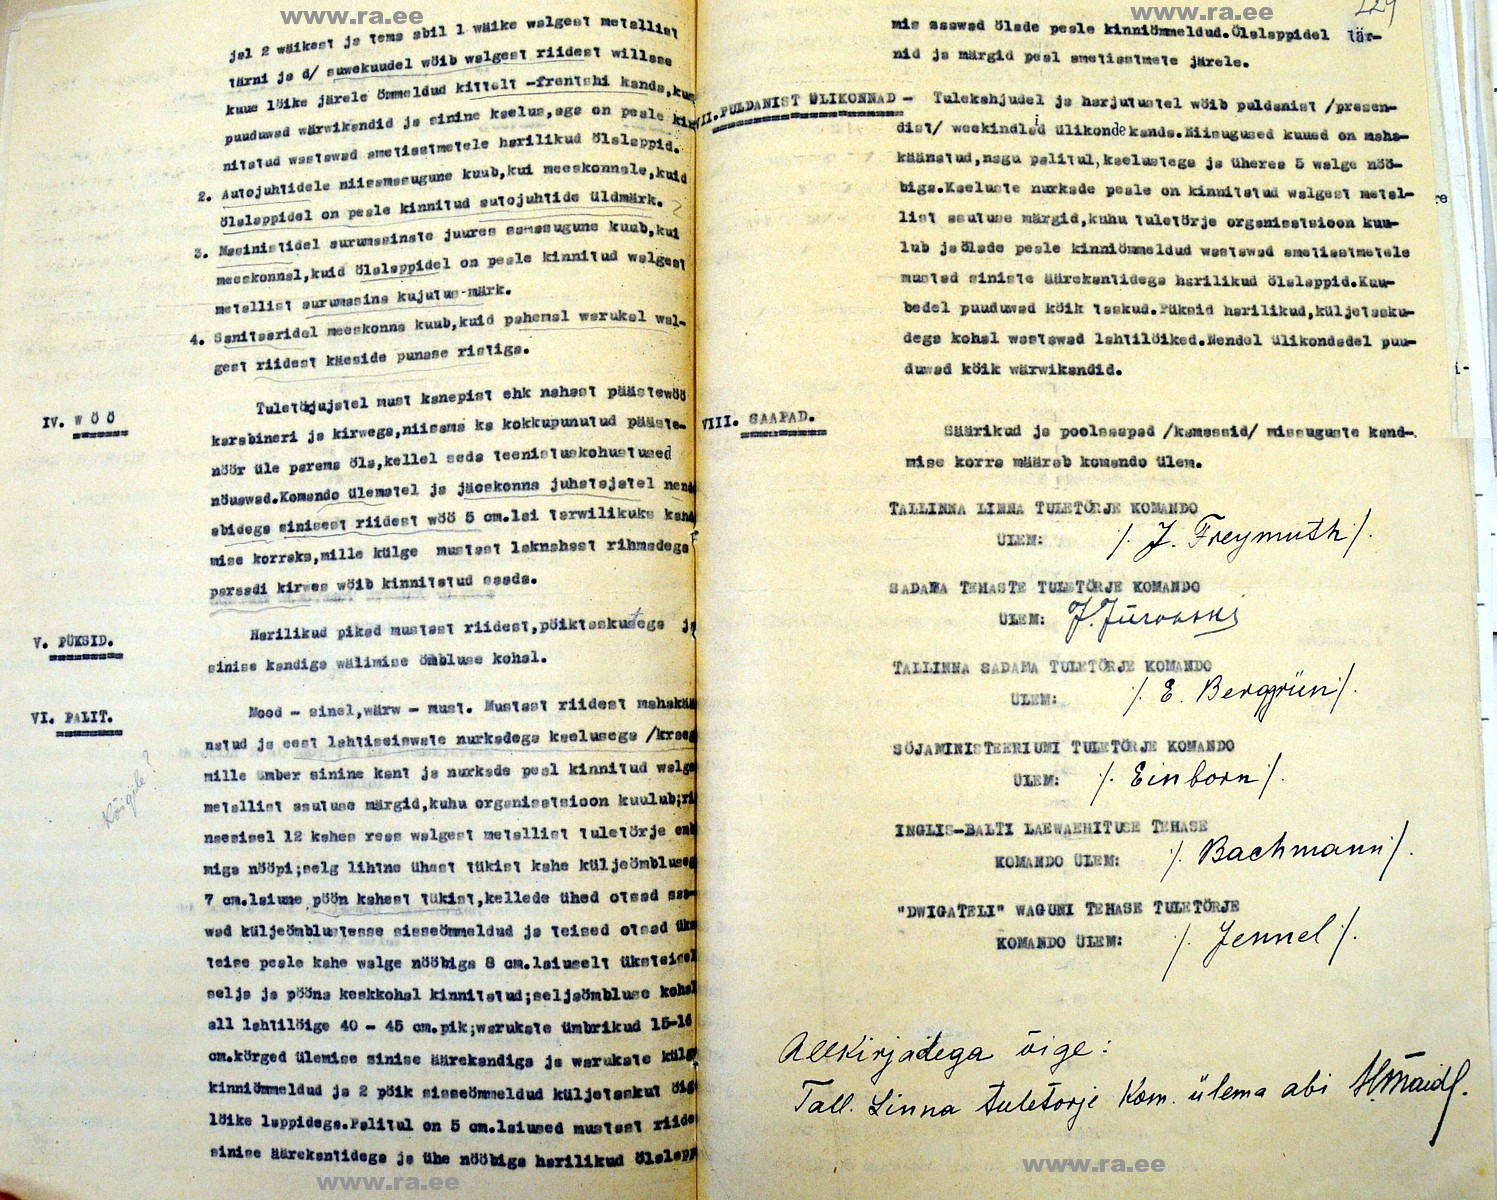 www.ra.ee
jal 2 wäikest ja tema abil 1 wäike walgest metallist
tärni ja d/ suwekuudel wõib walgest riidest willase
kuue lõike järele õmmeldud kittelt -frentshi kanda,
puuduwad wärwikandid ja sinine kaelus,aga on peale
nitatud wastawad ametiastmetele harilikud õlalappid.
2. Autojuhtidele niisamasugune kuub,kui meeskonnale,kuid
õlalappidel on peale kinnitud autojuhtide üldmärk.
3. Masinistidel aurumasinate juures samasugune kuub,kui
meeskonnal,kuid õlalappidel on peale kinnitud walgest
metallist aurumasina kujutus-märk.
4. Sanitaaridel meeskonna kuub,kuid pahemal warukal wal-
gest riidest käeside punase ristiga.
IV. W Ö Ö
Tuletõrjujatel must kanepist ehk nahast päästewöö
karabineri ja kirwega,niisama ka kokkupunutud pääste-
nöör üle parema õla,kellel seda teenistuskohustused
nõuawad.Komando ülematel ja jäoskonna juhatajatel
abidega sinisest riidest wöö 5 cm.lai tarwilikuks
mise korraks,mille külge mustast laknahast rihmadega
paraadi kirwes wõib kinnitatud saada.
V. PÜKSID.
Harilikud pikad mustast riidest,põiktaskutega ja
sinise kandiga wälimise õmbluse kohal.
VI. PALIT.
Kõigile?
Mood - sinel,wärw - must. Mustast riidest
natud ja eest lahtiseiswate nurkadega kaelusega
mille ümber sinine kant ja nurkade peal kinnitud walge
metallist asutuse märgid,kuhu organisatsioon kuulub;
naesisel 12 kahes reas walgest metallist tuletõrje
miga nööpi;selg lihtne ühest tükist kahe küljeõmblusega
7 cm.laiune pöön kahest tükist,kellede ühed otsad saa-
wad küljeõmblustesse sisseõmmeldud ja teised otsad
teise peale kahe walge nööbiga 8 cm.laiuselt
selja ja pööna keskkohal kinnitatud;seljaõmbluse kohal
all lahtilõige 40 - 45 cm.pik;warukate ümbrikud 15-16
cm.kõrged ülemise sinise äärekandiga ja warukate
kinniõmmeldud ja 2 põik sisseõmmeldud küljetaskut
lõike lappidega.Palitul on 5 cm.laiused mustast
sinise äärekantidega ja ühe nööbiga harilikud
www.ra.ee
www.ra.ee
229
mis saawad õlade peale kinniõmmeldud.Õlalappidel tär-
nid ja märgid peal ametiastmete järele.
VII.PULDANIST ÜLIKONNAD -
Tulekahjudel ja harjutustel wõib puldanist /presen-
dist/ weekindlad ülikonde kanda.Niisugused kuued on maha-
käänatud,nagu palitul,kaelustega ja üheres 5 walge nöö-
biga.Kaeluste nurkade peale on kinnitatud walgest metal-
list asutuse märgid,kuhu tuletõrje organisatsioon kuu-
lub ja õlade peale kinniõmmeldud wastawad ametiastmetele
mustad siniste äärekantidega harilikud õlalappid.Kuu-
bedel puuduwad kõik taskud.Püksid harilikud,küljetasku-
dega kohal wastawad lahtilõiked.Nendel ülikondadel puu-
duwad kõik wärwikandid.
VIII. SAAPAD.
Säärikud ja poolsaapad /kamassid/ missuguste kand-
mise korra määrab komando ülem.
TALLINNA LINNA TULETÕRJE KOMANDO
ÜLEM: /. J. Freymuth/.
SADAMA TEHASTE TULETÕRJE KOMANDO
ÜLEM:
TALLINNA SADAMA TULETÕRJE KOMANDO
ÜLEM: /. E. Bergrün/.
SÕJAMINISTEERIUMI TULETÕRJE KOMANDO
ÜLEM: /. Einborn/.
INGLIS-BALTI LAEWAEHITUSE TEHASE
KOMANDO ÜLEM: /. Bachmann/.
"DWIGATELI" WAGUNI TEHASE TULETÕRJE
KOMANDO ÜLEM: /. Jennel/.
Allkirjadega õige:
Tall. Linna tuletõrje Kom. ülema abi HMaidl.
www.ra.ee